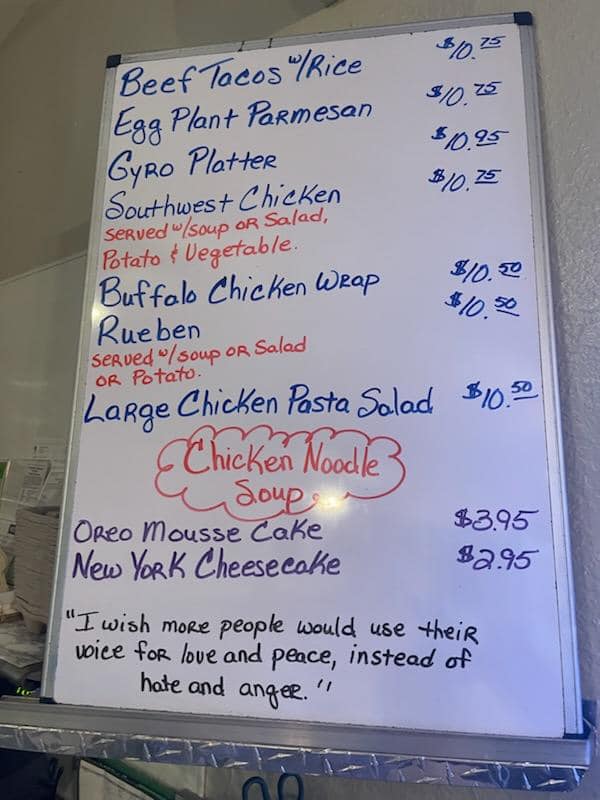 Beef Tacos w/Rice $10.75
Egg Plant Parmesan $10.75
Gyro Platter $10.95
Southwest Chicken $10.75
Served w/soup or Salad,
Potato & Vegetable.
Buffalo Chicken Wrap $10.50
Rueben $10.50
Served w/soup or Salad
or Potato.
Large Chicken Pasta Salad $10.50
Chicken Noodle
Soup
Oreo Mousse Cake $3.95
New York Cheesecake $2.95
"I wish more people would use their
voice for love and peace, instead of
hate and anger."